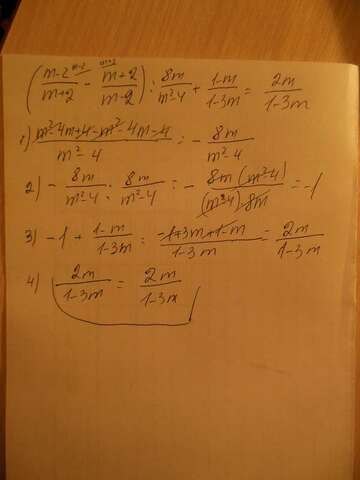 (m-2/m+2 m-2 - m+2/m-2 m+2) : 8m/m²-4 + 1-m/1-3m = 2m/1-3m
1) m²-4m+4-m²-4m-4/m²-4 = - 8m/m²-4
2) - 8m/m²-4 : 8m/m²-4 = - 8m(m²-4)/(m²-4)8m = -1
3) -1 + 1-m/1-3m = -1+3m+1-m/1-3m = 2m/1-3m
4) 2m/1-3m = 2m/1-3m